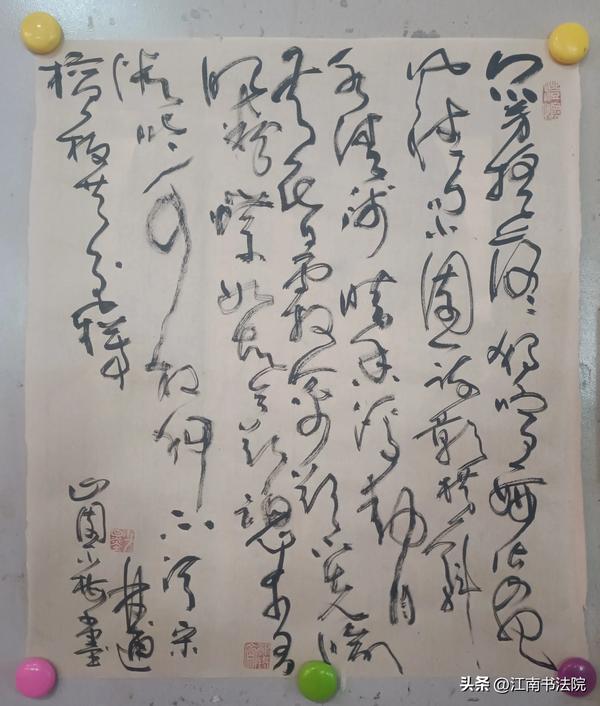 众芳摇落独暄妍占尽风
情向小園疏影横斜
水清浅暗香浮动月
黄昏霜禽欲下先偷
眼粉蝶如知合断魂幸有
微吟可相狎不须宋
檀板共金樽
林逋
山園小梅
头条 @江南书法院